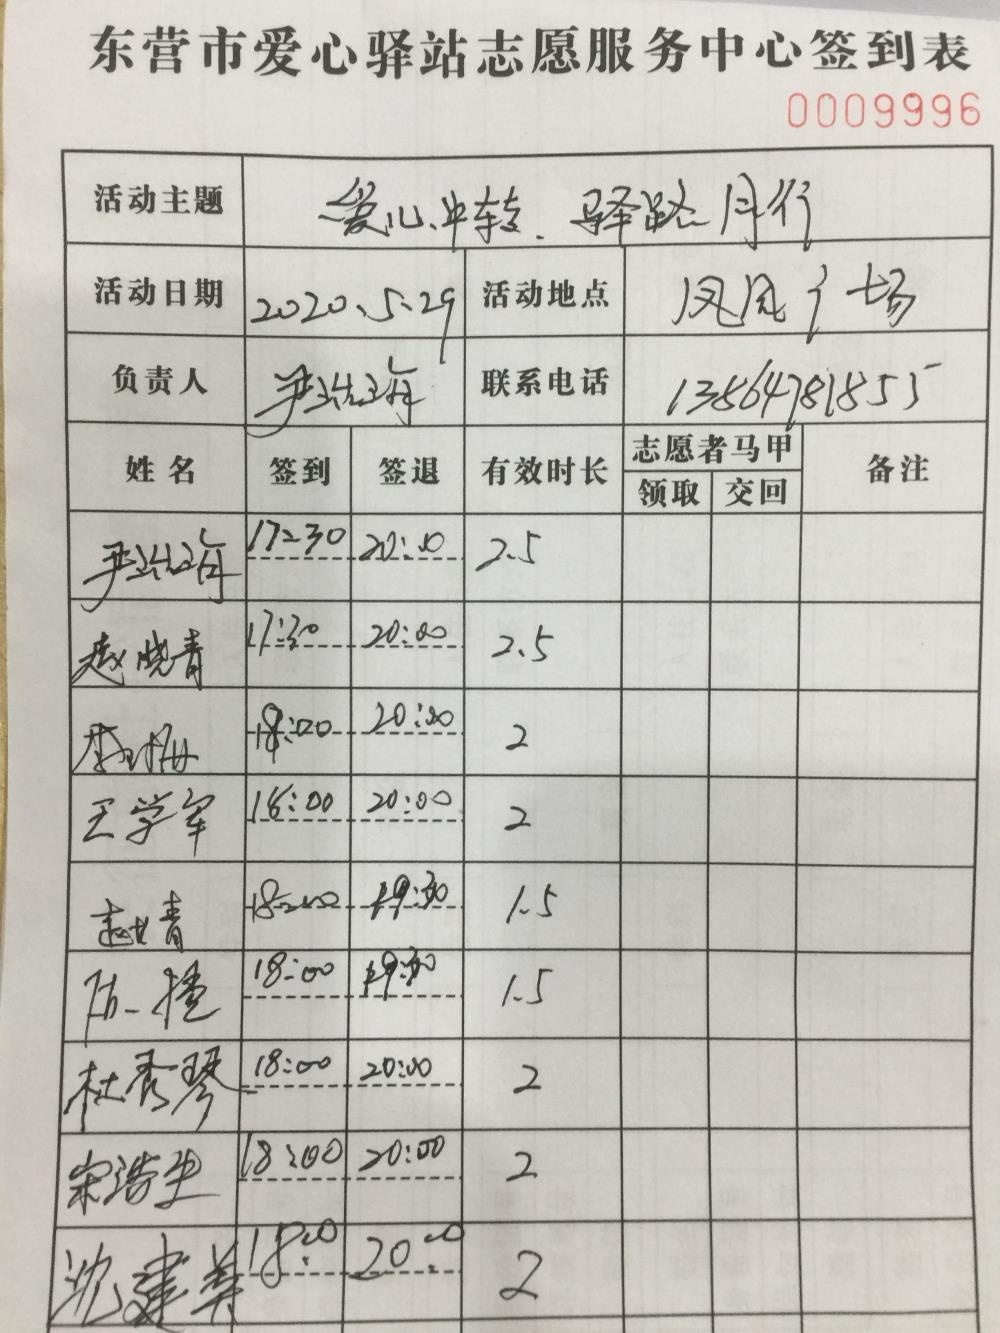 东营市爱心驿站志愿服务中心签到表
0009996
活动主题 爱心中转、驿路同行
活动日期 2020.5.29 活动地点 凤凰广场
负责人 联系电话 13864781855
姓名 签到 签退 有效时长 志愿者马甲 备注
领取 交回
17:30 20:00 2.5
赵晓青 17:30 20:00 2.5
18:00 20:00 2
王学军 18:00 20:00 2
18:00 19:30 1.5
18:00 19:30 1.5
杜秀琴 18:00 20:00 2
宋浩生 18:00 20:00 2
沈建美 18:00 20:00 2